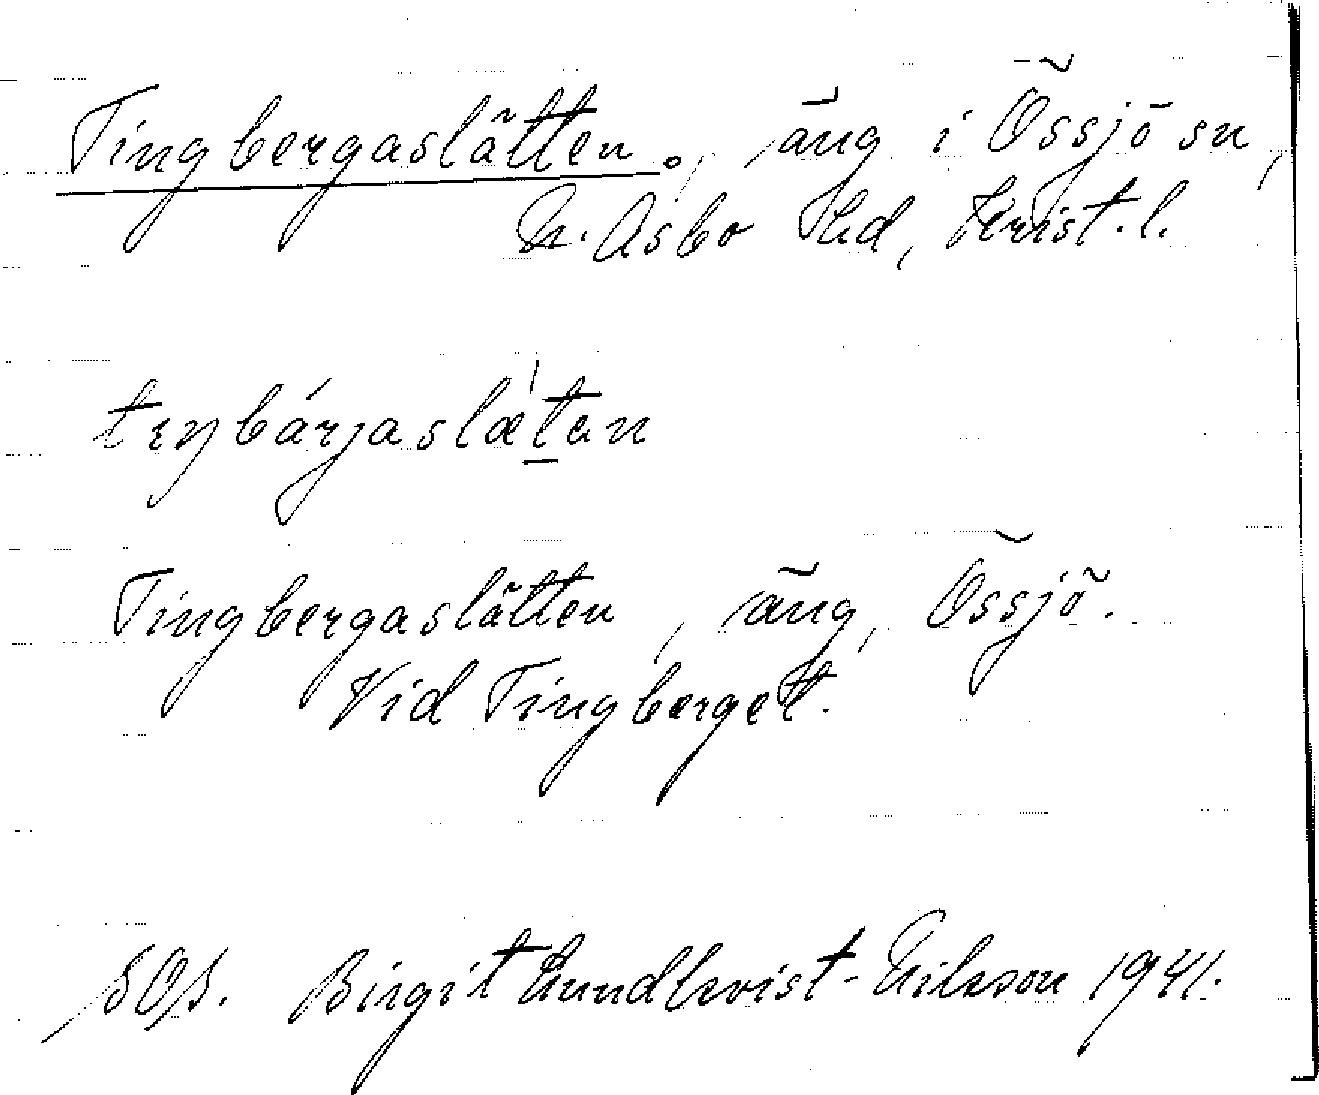 Tingbergaslätten., äng i Össjö sn,
N. Åsbo hd, Krist. l.
tıŋbárjaslæ̀tan
Tingbergaslätten, äng, Össjö.
Vid Tingberget.
SOS. Birgit Lundkvist-Nilsson 1941.